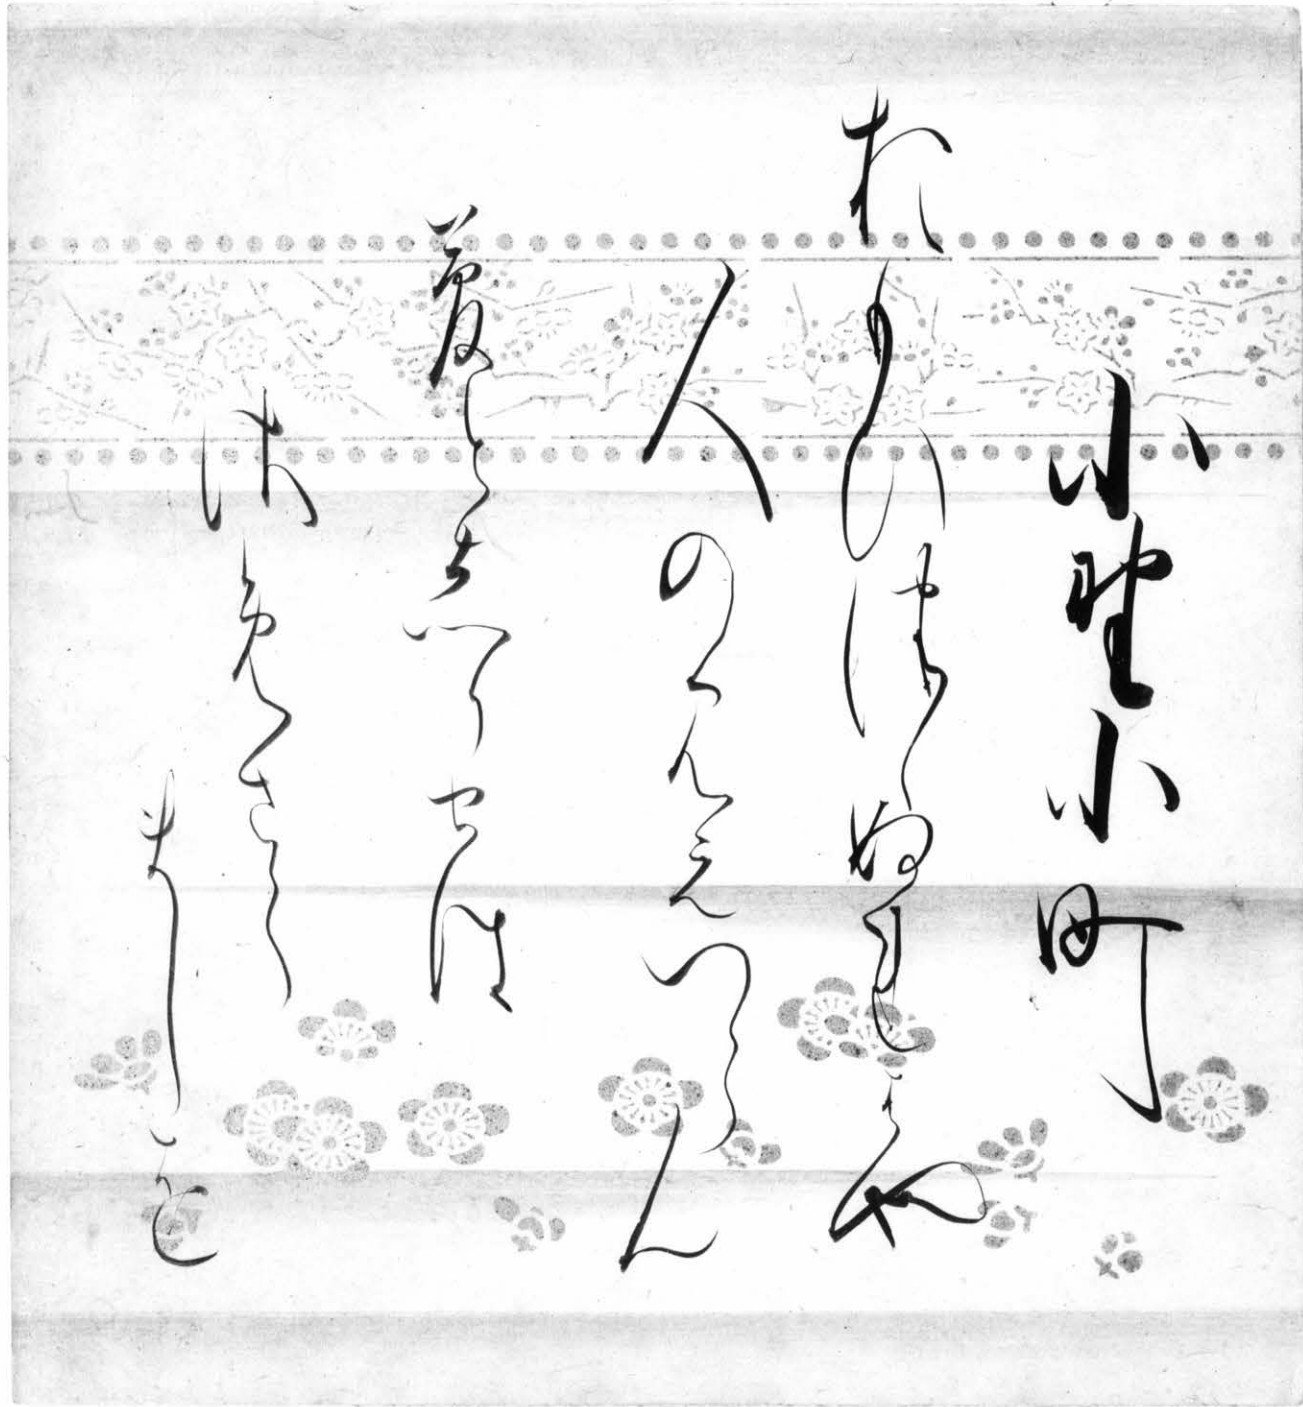 小野小町
おもひつゝぬれはや
人のみえつらん
夢としりせは
さめさら
ましを